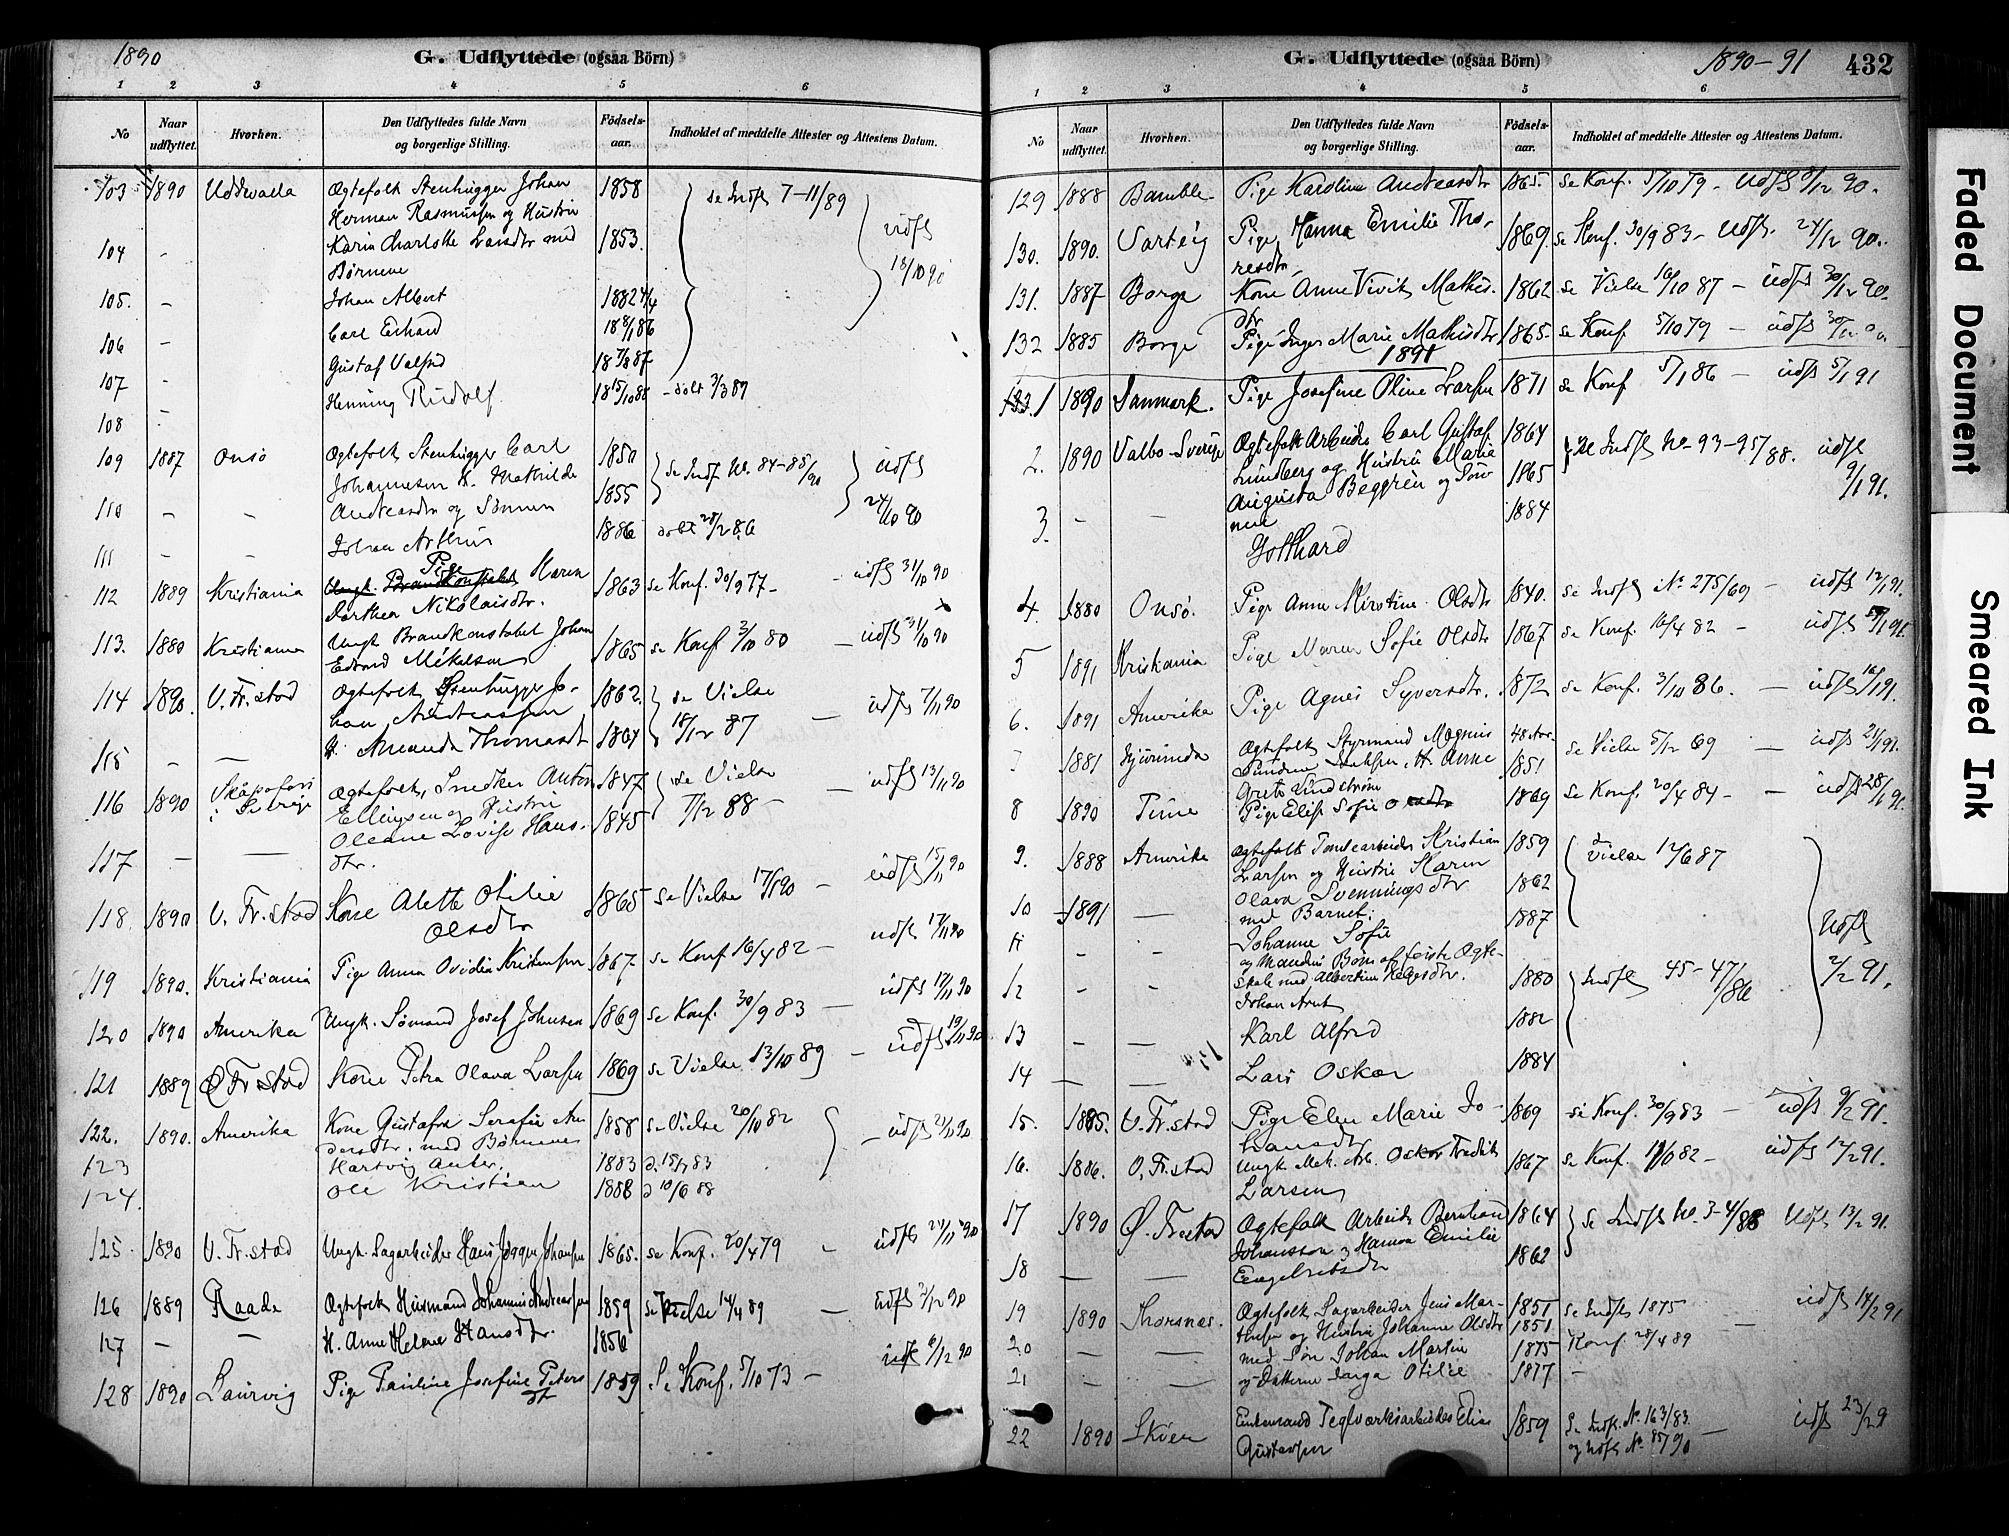 1890
G. Udflyttede (ogsaa Börn)
1 2 3 4 5 6
No
Naar udflyttet.
Hvorhen.
Den Udflyttedes fulde Navn og borgerlige Stilling.
Födsels-aar.
Indholdet af meddelte Attester og Attestens Datum.
103 1890 Uddevalla Ægtefolk Stenhugger Johan 1858 se Indfl 7-11/89
Herman Rasmussen og Hustru udfl
104 - Karin Charlotte Larsdtr med 1853. 18/10 90
Børnene
105. - Johan Albert 1882 4/4
106 - Carl Erhard 18 8/1 86
107 - Gustaf Valfrid 18 7/8 87
108 - Henning Rudolf 18 15/10 88 - døbt 3/3 89
109 1887 Onsø Ægtefolk Stenhugger Carl 1850 se Indf. No. 84-85/90 udfl
Johannesen H. Mathilde 1855
110 - - Andreasdtr og Sønnen 24/10 90
111 - - Johan Arthur 1886 døbt 28/2 86
112 1889 Kristiania Pige Karen 1863 se Konf. 30/9 77 - udfl 31/10 90
Dorthea Nikolaisdtr.
113. 1880 Kristiania Ungk Brandkonstabel Johan 1865 se Konf 3/10 80 - udfl 31/10 90
Edvard Mikelsen
114 1890. V. Fr.stad Ægtefolk Stenhugger Jo- 1862. se Vielse udfl 7/11 90
han Andreassen 18/12 87 -
115 - - H. Amanda Thomasdt 1864
116 1890 i Sverige Ægtefolk, Snedker Anton 1847 se Vielse - udfl 13/11 90
Ellingsen og Hustru 7/12 88 -
117 - - Oleane Lovise Hans- 1845
dtr.
118. 1890 V. Fr.stad Kone Alette Otilie 1865 se Vielse 17/1 90 - udfl 15/11 90
Olsdtr
119 1890. Kristiania Pige Anna Ovidia Kristensen 1867 se Konf 16/4 82 - udfl 17/11 90
120 1890 Amerika Ungk. Sømand Josef Johnsen 1869 se Konf. 30/9 83 - udfl 17/11 90
121 1889 Ø Fr.stad Kone Petra Olava Larsen 1869 se Vielse 13/10 89 - udfl 19/11 90
122. 1890. Amerika Kone Gustafva Serafie An 1858 se Vielse 20/10 82 - udfl 21/11 90
dersdtr. med Børnene
123 Hartvig Anker. 1883 d. 15/7 83
124. Ole Kristian 1888 d 10/6 88
125. 1890 V. Fr.stad Ungk. Sagarbeider Hans Jørgen Johansen 1865. se Konf. 20/4 79 - udfl 24/11 90
126 1889 Raade Ægtefolk Husmand Johannes Andreassen 1859 se Vielse 14/4 89 - udfl 2/12 90
127 - - H. Anne Helene Hansdtr. 1856
128 1890 Laurvig Pige Pauline Josefine Peters 1859 Se Konf. 5/10 73 - udfl 6/12 90
dt
G. Udflyttede (ogsaa Börn)
1890-91 432
1 2 3 4 5 6
No
Naar udflyttet.
Hvorhen.
Den Udflyttedes fulde Navn og borgerlige Stilling.
Födsels-aar.
Indholdet af meddelte Attester og Attestens Datum.
129 1888 Bamble Pige Karoline Andreasdtr 1865. se Konf. 5/10 79 - Udfl 9/12 90.
130. 1890. Varteig Pige Hanna Emilie Tho- 1869. se Konf. 30/9 83 - Udfl. 24/12 90.
resdtr
131. 1887 Borge Kone Anne Vivik Mathis- 1862 se Vielse 16/10 87 - udfl 30/12 90.
dtr
132 1885 Borge Pige Inger Marie Mathisdtr 1865. se Konf 5/10 79 - udfl 30/12
1891
1 1890 Danmark. Pige Josefine Oline Larsen 1871 se Konf 5/1 86 - udfl 5/1 91
2. 1890 Valbo-Sverige Ægtefolk Arbeider Carl Gustaf 1864 se Indfl No - 93-95/88. udfl
Lundberg og Hustru Maria 1865 9/1 91.
3. - - Augusta Beggren og Søn
nen 1884
Gotthard
4. 1880 Onsø. Pige Anne Kirstine Olsdtr 1840. se Indfl No 275/69 - udfl 12/1 91.
5 1891 Kristiania Pige Maren Sofie Olsdtr 1867 se Konf. 16/4 82 - udfl
6. 1891 Amerika Pige Agnes Syversdtr. 1872 se Konf. 3/10 86. - udfl 16/1 91.
7 1881 Ægtefolk Styrmand Magnus se Vielse 5/12 69 - udfl 21/1 91.
H. Anne 1851
Grete Lindstrøm
8 1890 Tune Pige Elise Sofie Olsdtr 1869 se Konf. 20/4 84 - - udfl 28/1 91.
9. 1888 Amerika Ægtefolk Tomtearbeider Kristian 1859 Vielse 12/6 87
Larsen og Hustru Karen
10 1891 - Olava Svenningsdtr 1862
med Barnet: 1887
11 - - Johanne Sofie Udfl
og Mandens Børn af første Ægte- 2/2 91.
12 - - skab med Albertine 1880 Indfl 45-47/86
Johan Arnt
13 - - Karl Alfred 1882
14 - - Lars Oskar 1884
15. 1885. V. Fr.stad Pige Elen Marie Jo- 1869 se Konf. 30/9 83 - udfl 9/2 91.
hansdtr
16. 1886. V. Fr.stad Ungk. Mek. Arb. Oskar Fredrik 1867 se Konf. 1/10 82 - udfl 12/2 91.
Larsen
17 1890 Ø. Fr.stad Ægtefolk Arbeider Bernhard 1864 se Indfl No. 3-4/88 Udfl 13/2 91.
Johansson og Hanna Emilie
18 - - Engelretsdtr 1862
19 1890 Thorsnæs. Ægtefolk Sagarbeider Jens Mar- 1851 se Indfl 1875 - udfl 14/2 91
thesen og Hustru Johanne Olsdtr 1851
20 - - med Søn Johan Martin 1875 Konf 28/4 89
21 - - og Datteren Otilie 1877 -
22 1890 Skien Enkemand Teglværksarbeider Elias 1859 Se Indfl. No 163/83. udfl 23/2 9
Gustavsen og Udfl No 85/90 -
Faded Document
Smeared Ink